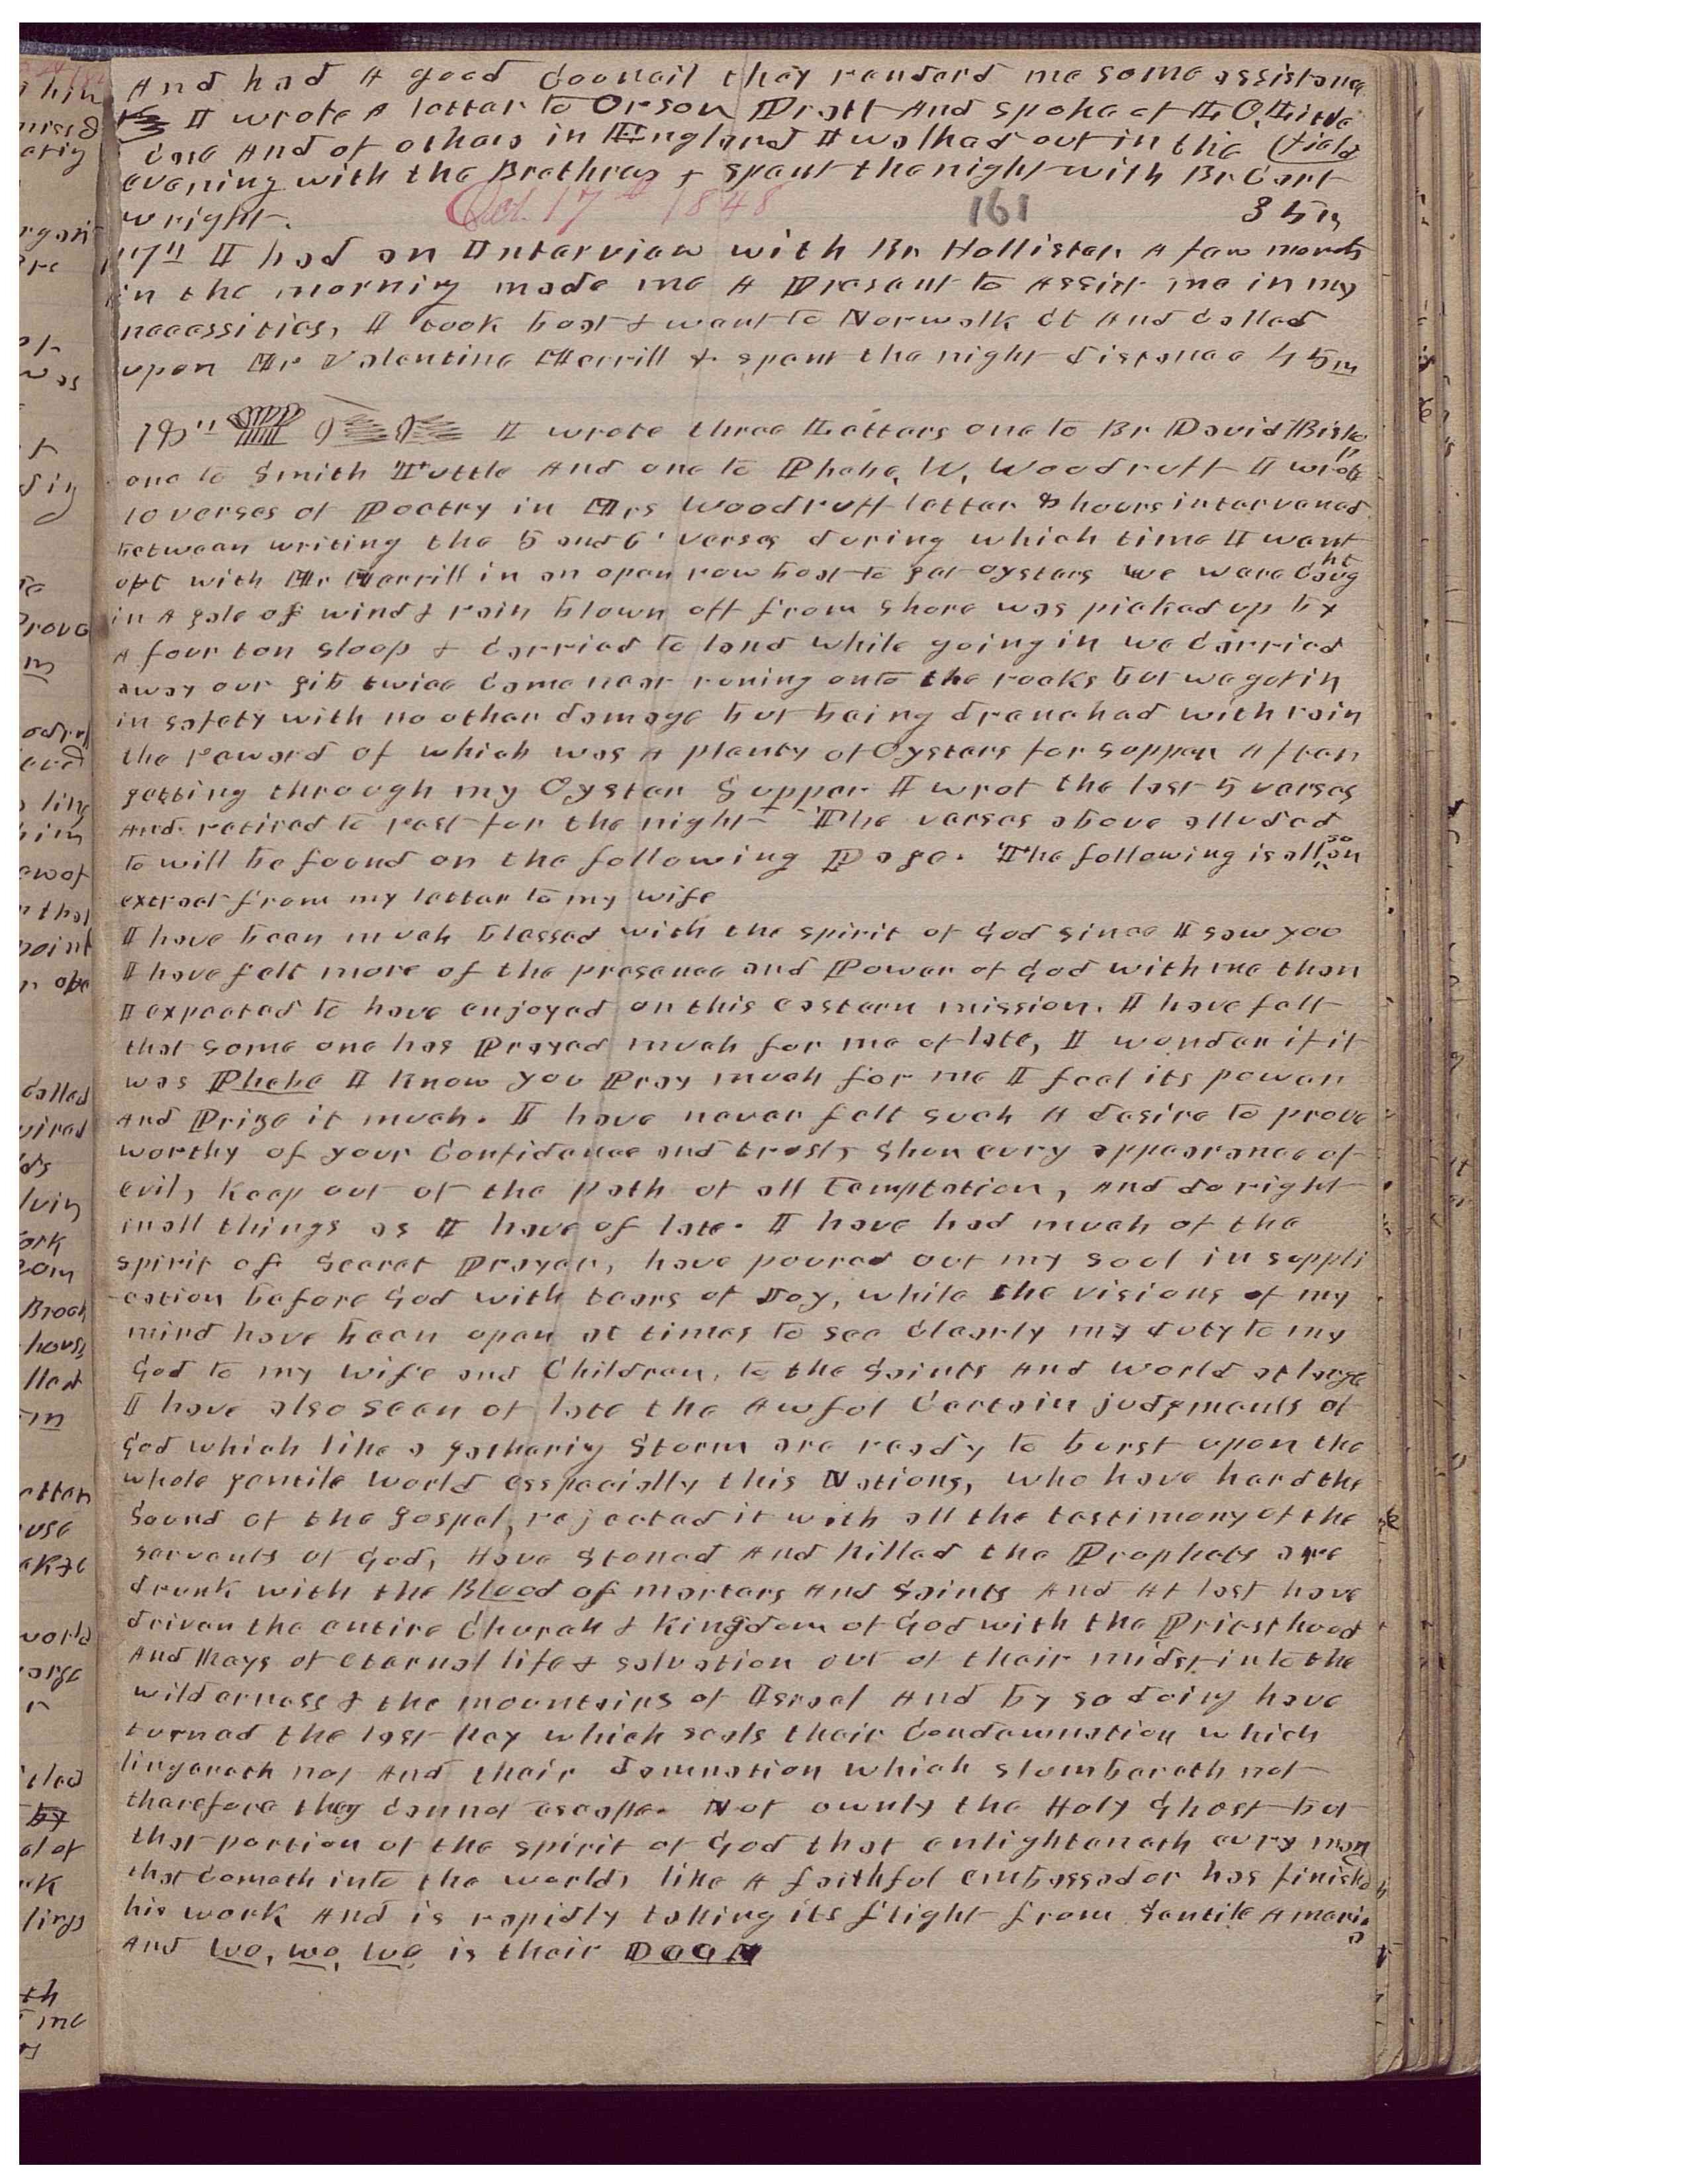 And had A good Councail they renderd me some assistance
I wrote A letter to Orson Pratt And spoke of L O. Little
field
Case And of others in England I walked out in the
evening with the Brethren & spent the night with Br Cart
wright. Oct. 17th 1848 161 35 m
17" I had an Interview with Br Hollister A few moments
in the morning made me A Present to Assist me in my
necessities, I took boat & went to Norwalk Ct And Called
upon Mr Valentine Merrill & spent the night distance 45 m
18" I wrote three Letters one to Br David
one to Smith Tuttle And one to Phebe, W, Woodruff I wrote
10 verses of Poetry in Mrs Woodruff letter 8 hours intervened
between writing the 5 and 6' verses during which time I went
out with Mr Merrill in an open row boat to get oysters we were Caught
in A gale of wind & rain blown off from shore was picked up by
A four ton sloop & Carried to land while going in we Carried
away our gib twice Came near runing onto the rocks but we got in
in safety with no other damage but being drenched with rain
the reward of which was A plenty of Oysters for supper After
getting through my Oyster Supper I wrot the last 5 verses
And retired to rest for the night The verses above alluded
to will be found on the following Page. The following is allso an
extract from my letter to my wife
I have been much blessed with the spirit of God since I saw you
I have felt more of the presence and Power of God with me than
I expected to have enjoyed on this eastern mission. I have felt
that some one has Prayed much for me of late, I wonder if it
was Phebe I know you Pray much for me I feel its power
And Prize it much. I have never felt such A desire to prove
worthy of your Confidence and trust, shun evry appearance of
evil, keep out of the path of all temptation, And do right
in all things as I have of late. I have had much of the
spirit of Secret Prayer, have poured out my soul in suppli
cation before God with tears of Joy, while the visions of my
mind have been open at times to see Clearly my duty to my
God to my wife and Children, to the Saints And world at large
I have also seen of late the Awful Certain judgments of
God which like a gatheriy Storm are ready to burst upon the
whole gentile world esspecially this Nations, who have hard the
Sound of the gospel, rejected it with all the testimony of the
servants of God, Have Stoned And killed the Prophets are
drunk with the Blood of martars And Saints And At last have
driven the entire Church & Kingdom of God with the Priesthood
And Keys of eternal life & salvation out of their midst into the
wilderness & the mountains of Israel And by so doing have
turned the last key which seals their Condemnation which
lingereth not And their damnation which slumbereth not
therefore they cannot escape. Not ownly the Holy Ghost but
that portion of the spirit of God that enlighteneth evry man
that cometh into the world, like A faithful embassador has finished
his work And is rapidly taking its flight from Gentile America
And wo, wo, wo is their DOOM